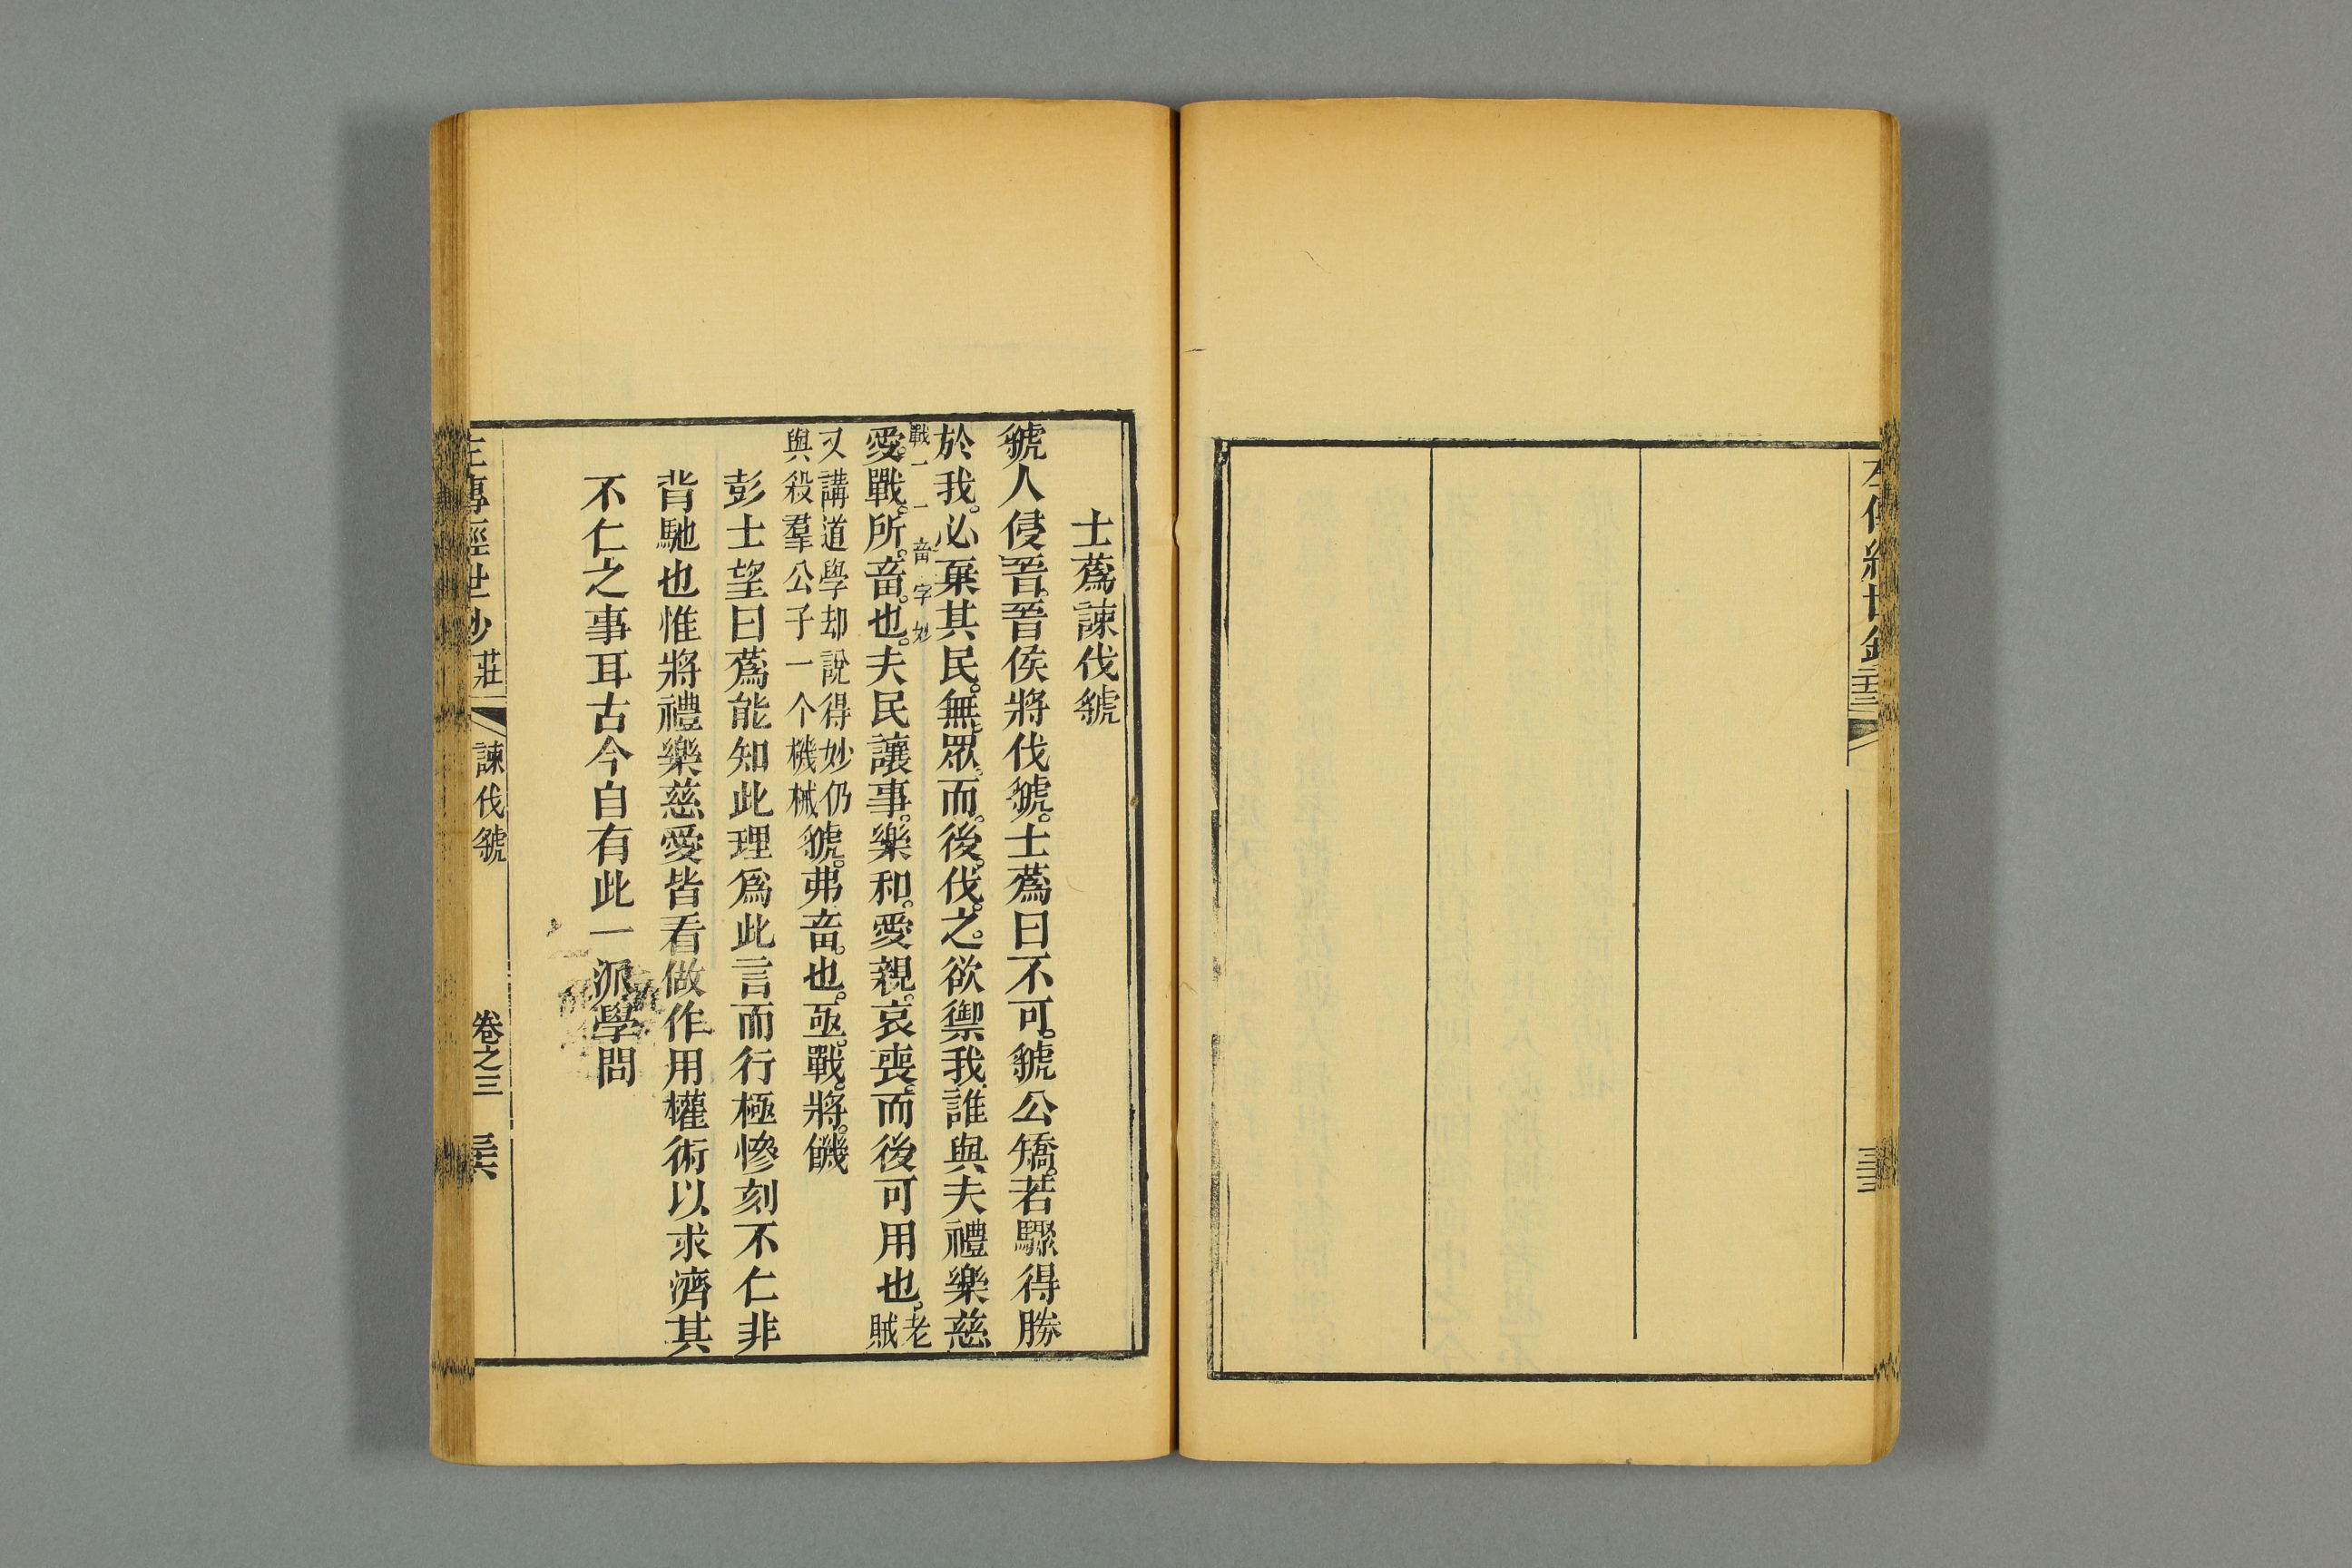 左傳經世鈔
士蒍諫伐虢
虢人侵晉。晉侯將伐虢。士蒍曰不可。虢公驕。若驟得勝
於我。必棄其民。無眾。而。後。伐。之。欲禦我誰與夫禮樂慈
戰
畜字妙
愛。戰。所。畜。也。夫民讓事。樂和。愛親。哀喪。而後可用也。老
賊
又講道學却說得妙仍
與殺羣公子一个機械虢。弗畜。也。亟。戰。將。饑
彭士望曰蒍能知此理爲此言而行極慘刻不仁非
背馳也惟將禮樂慈愛皆看做作用權術以求濟其
不仁之事耳古今自有此一派學問
左傳經世鈔 莊 諫伐虢 卷之三